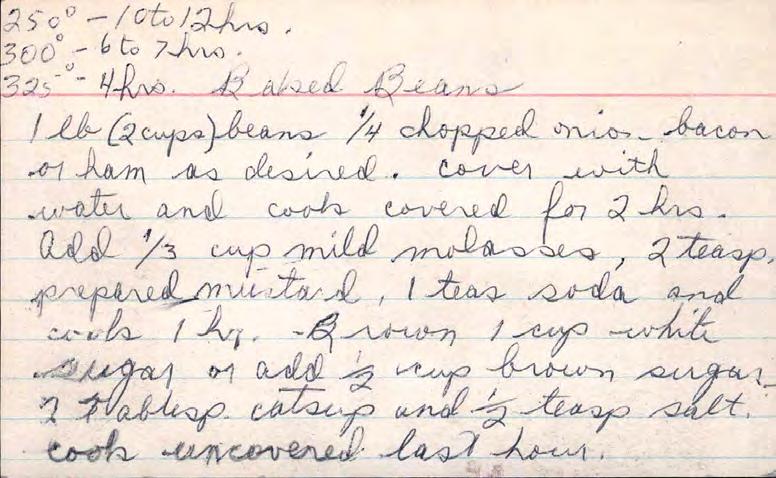 250° - 10 to 12 hrs.
300° - 6 to 7 hrs.
325° - 4 hrs. Baked Beans
1 lb (2 cups) beans 1/4 chopped onion bacon
or ham as desired. cover with
water and cook covered for 2 hrs.
Add 1/3 cup mild molasses, 2 teasp.
prepared mustard, 1 teas soda and
cook 1 hr. - Brown 1 cup white
sugar or add 1/2 cup brown sugar
Tablesp. catsup and 1/2 teasp salt.
cook uncovered last hour.